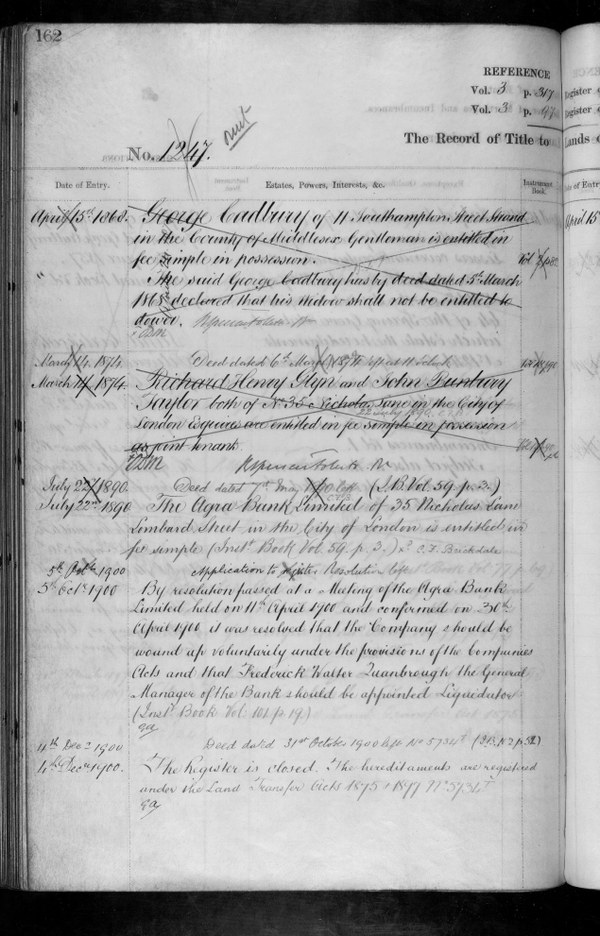 162
REFERENCE
Vol. 3 p. 317
Vol. 3 p. 97
No. 1247.
The Record of Title to
Lands
Date of Entry.
Estates, Powers, Interests, &c.
Instrument Book.
April 15th 1868.
George Cadbury of 11 Southampton Street Strand
in the County of Middlesex Gentleman is entitled in
fee simple in possession.
" The said George Cadbury has by deed dated 5th March
1868 declared that his widow shall not be entitled to
dower.
March 14. 1874.
Deed dated 6th March 1874
March 14. 1874.
Richard Henry Glyn and John Dunbury
Taylor both of No. 35 Nicholas Lane in the City of
London Esquires are entitled in fee simple in possession
as joint tenants.
July 22 1890.
Deed dated 7th May 1890 (I.B. Vol. 59. p. 3.)
July 22nd 1890
The Agra Bank Limited of 35 Nicholas Lane
Lombard Street in the City of London is entitled in
fee simple (Inst. Book Vol. 59. p. 3.) C. F. Brickdale
5th Octr 1900
Application to register Resolution
5th Octr 1900
By resolution passed at a Meeting of the Agra Bank
Limited held on 11th April 1900 and confirmed on 30th
April 1900 it was resolved that the Company should be
wound up voluntarily under the provisions of the Companies
Acts and that Frederick Walter Quanbrough the General
Manager of the Bank should be appointed Liquidator
(Inst. Book Vol. 101. p. 19.)
11th Decr 1900
Deed dated 31st October 1900
11th Decr 1900.
The Register is closed. The hereditaments are registered
under the Land Transfer Acts 1875 & 1897